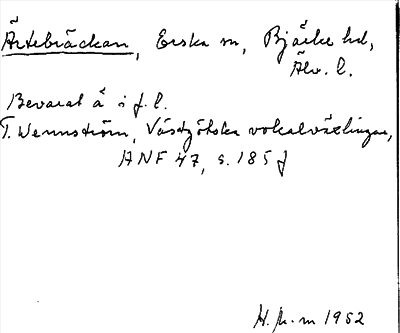 Ärtebräckan, Erska sn, Bjärke hd,
Älv. l.
Bevarat ä i f. l.
T. Wennström, Västgötska vokalväxlingar,
ANF 47, s. 185 f
H. 1952